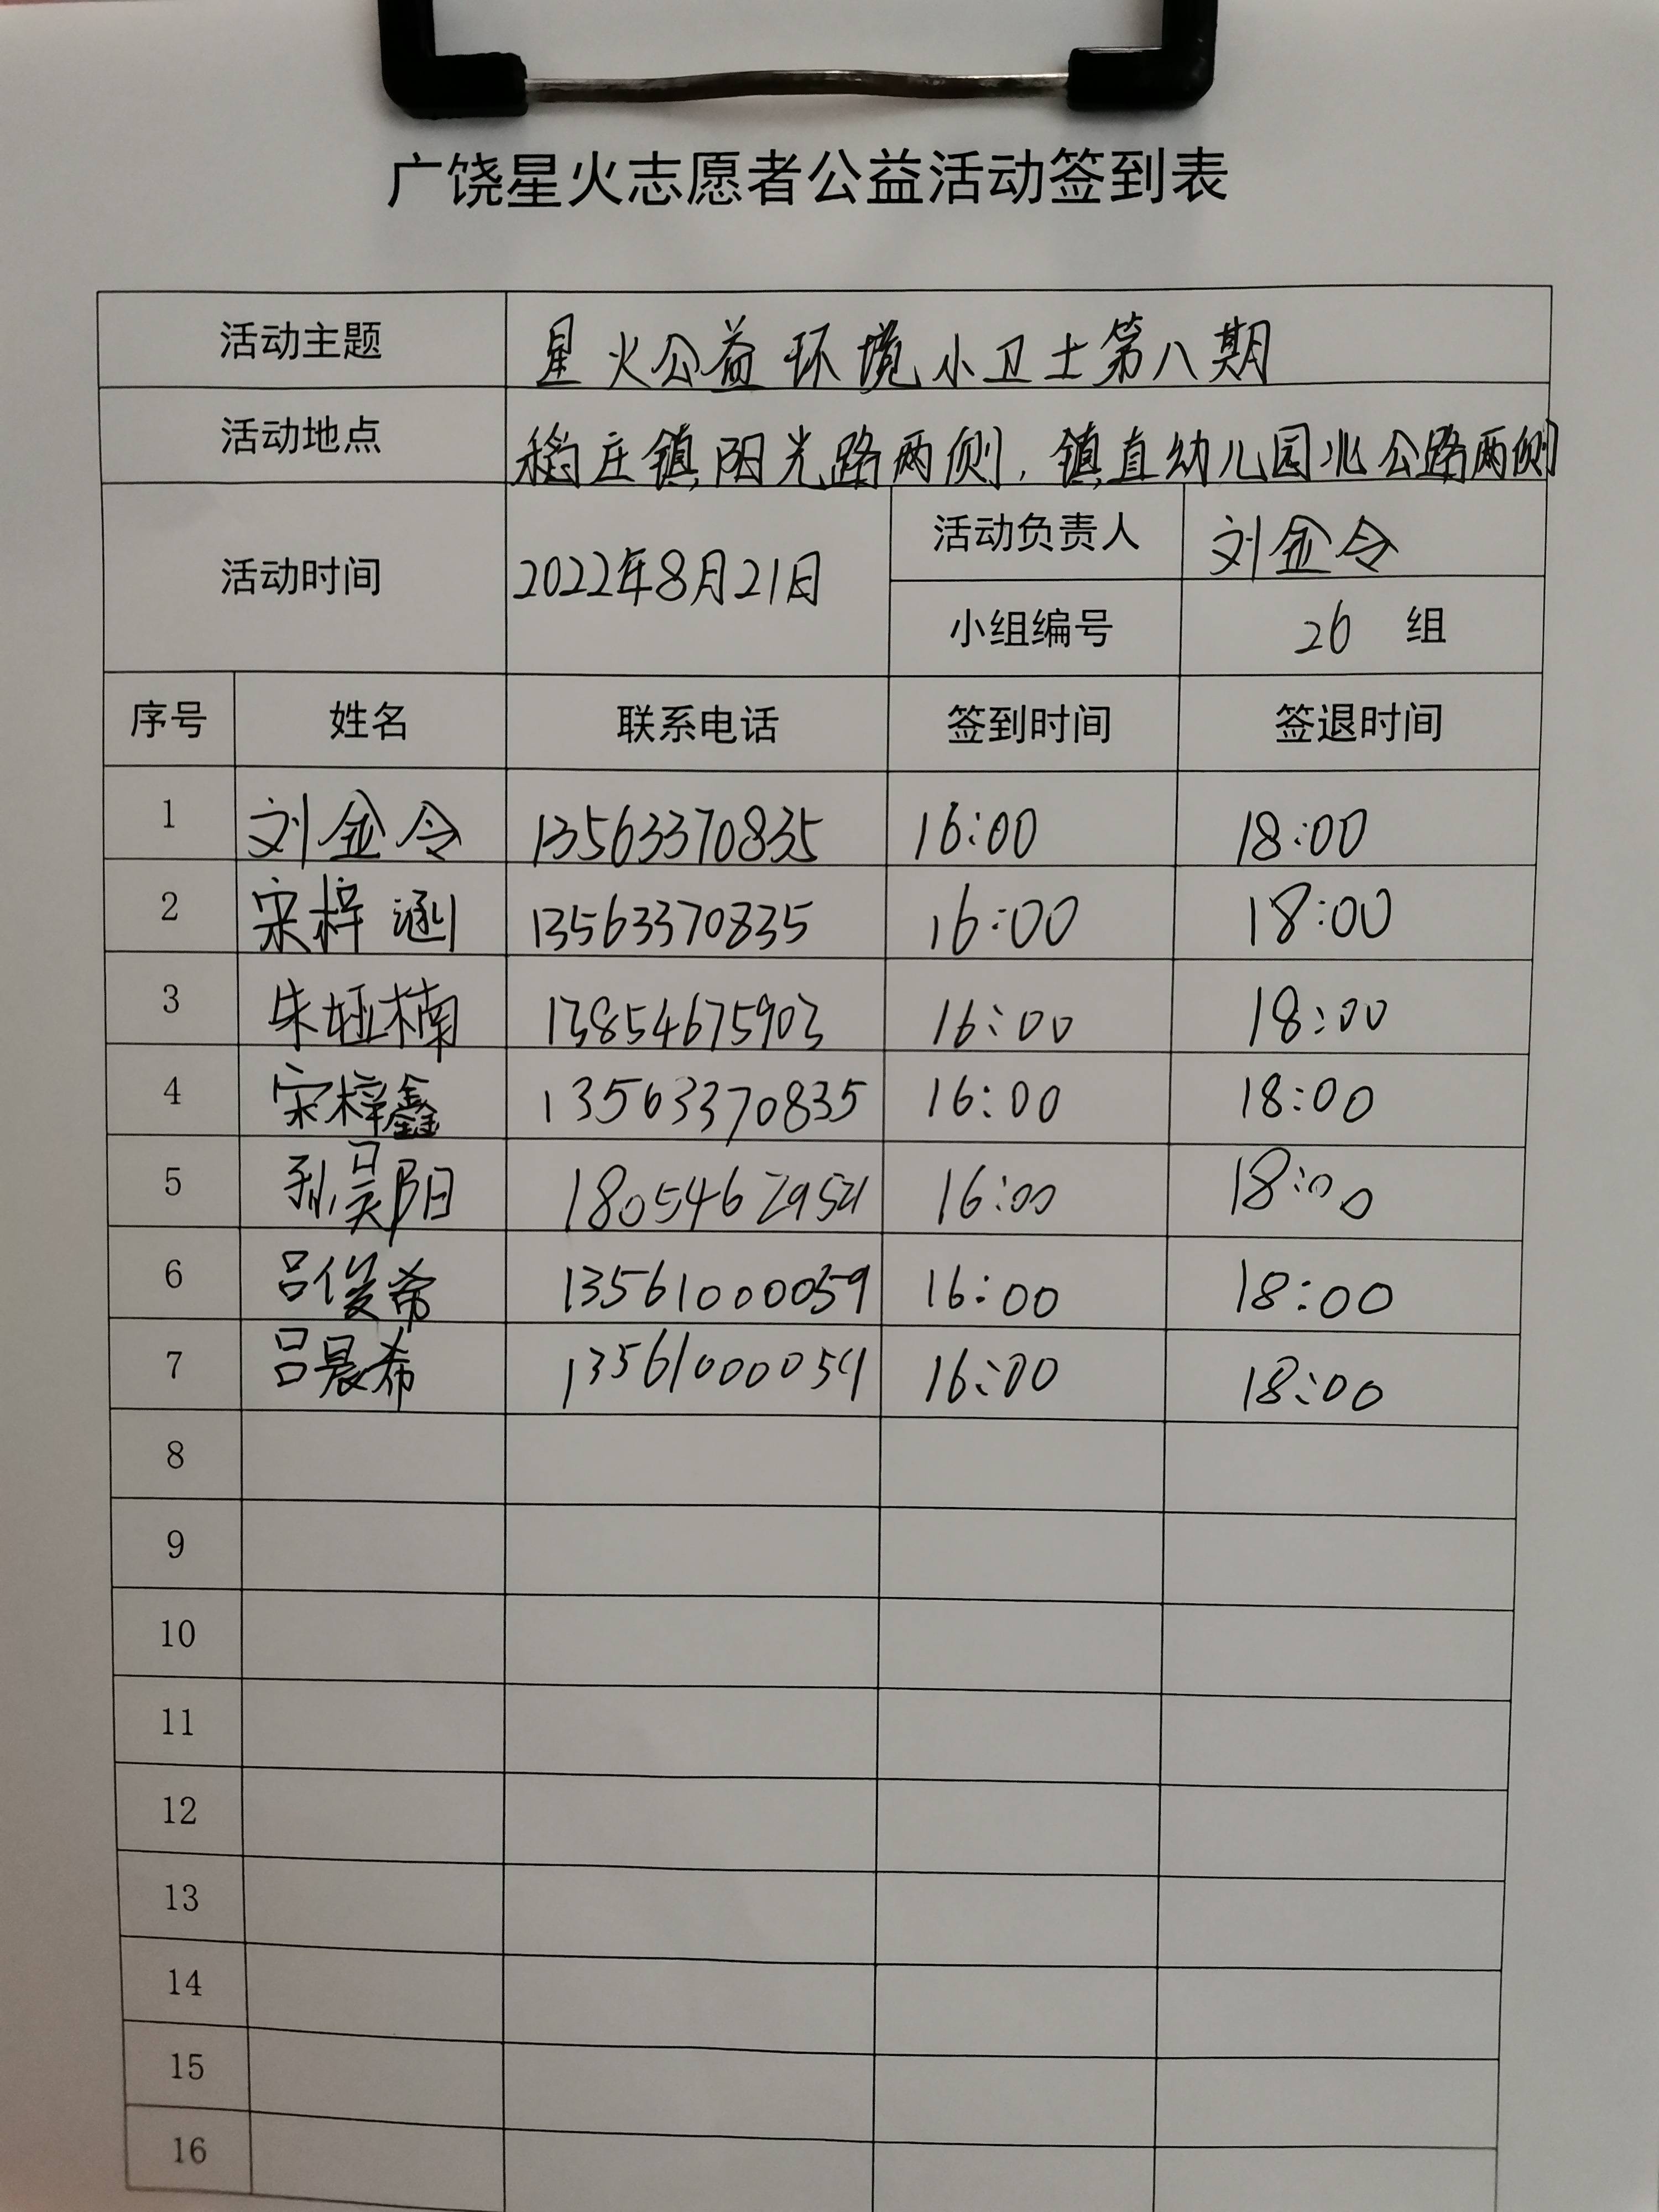 广饶星火志愿者公益活动签到表
活动主题 星火公益环境小卫士第八期
活动地点 稻庄镇阳光路两侧,镇直幼儿园北公路两侧
活动时间 2022年8月21日 活动负责人 刘金令
小组编号 26 组
序号 姓名 联系电话 签到时间 签退时间
1 刘金令 13563370835 16:00 18:00
2 宋梓涵 13563370835 16:00 18:00
3 朱垭楠 13854675903 16:00 18:00
4 宋梓鑫 13563370835 16:00 18:00
5 孙昊阳 16:00 18:00
6 吕俊希 13561000059 16:00 18:00
7 吕晨希 13561000059 16:00 18:00
8
9
10
11
12
13
14
15
16